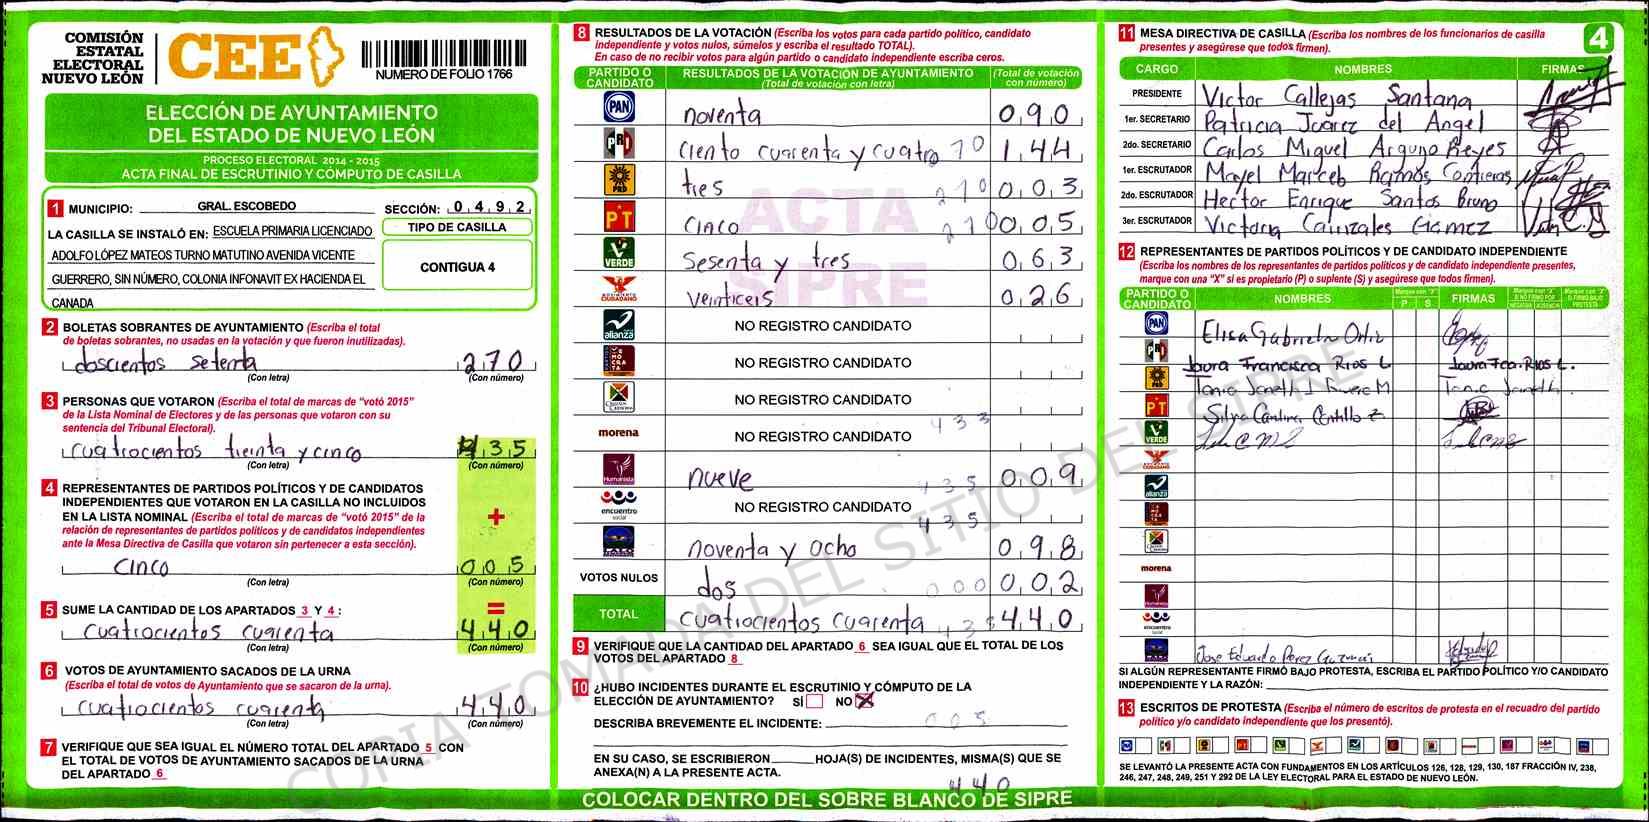 COMISIÓN
ESTATAL
ELECTORAL
NUEVO LEÓN
CEE
NUMERO DE FOLIO 1766
ELECCIÓN DE AYUNTAMIENTO
DEL ESTADO DE NUEVO LEÓN
PROCESO ELECTORAL 2014 - 2015
ACTA FINAL DE ESCRUTINIO Y CÓMPUTO DE CASILLA
1 MUNICIPIO: GRAL. ESCOBEDO SECCIÓN: 0 4 9 2
LA CASILLA SE INSTALÓ EN: ESCUELA PRIMARIA LICENCIADO
ADOLFO LÓPEZ MATEOS TURNO MATUTINO AVENIDA VICENTE
GUERRERO, SIN NÚMERO, COLONIA INFONAVIT EX HACIENDA EL
CANADA
TIPO DE CASILLA
CONTIGUA 4
2 BOLETAS SOBRANTES DE AYUNTAMIENTO (Escriba el total
de boletas sobrantes, no usadas en la votación y que fueron inutilizadas).
doscientos setenta 270
(Con letra) (Con número)
3 PERSONAS QUE VOTARON (Escriba el total de marcas de "votó 2015"
de la Lista Nominal de Electores y de las personas que votaron con su
sentencia del Tribunal Electoral).
cuatrocientos treinta y cinco 435
(Con letra) (Con número)
4 REPRESENTANTES DE PARTIDOS POLÍTICOS Y DE CANDIDATOS
INDEPENDIENTES QUE VOTARON EN LA CASILLA NO INCLUIDOS
EN LA LISTA NOMINAL (Escriba el total de marcas de "votó 2015" de la
relación de representantes de partidos políticos y de candidatos independientes
ante la Mesa Directiva de Casilla que votaron sin pertenecer a esta sección).
+
cinco 005
(Con letra) (Con número)
5 SUME LA CANTIDAD DE LOS APARTADOS 3 Y 4 : =
cuatrocientos cuarenta 440
(Con letra) (Con número)
6 VOTOS DE AYUNTAMIENTO SACADOS DE LA URNA
(Escriba el total de votos de Ayuntamiento que se sacaron de la urna).
cuatrocientos cuarenta 440
(Con letra) (Con número)
7 VERIFIQUE QUE SEA IGUAL EL NÚMERO TOTAL DEL APARTADO 5 CON
EL TOTAL DE VOTOS DE AYUNTAMIENTO SACADOS DE LA URNA
DEL APARTADO 6
8 RESULTADOS DE LA VOTACIÓN (Escriba los votos para cada partido político, candidato
independiente y votos nulos, súmelos y escriba el resultado TOTAL).
En caso de no recibir votos para algún partido o candidato independiente escriba ceros.
PARTIDO O CANDIDATO RESULTADOS DE LA VOTACIÓN DE AYUNTAMIENTO (Total de votación con letra) (Total de votación con número)
PAN noventa 090
PRI ciento cuarenta y cuatro 144
PRD tres 003
PT cinco 005
VERDE sesenta y tres 063
CIUDADANO veinticeis 026
alianza NO REGISTRO CANDIDATO
NO REGISTRO CANDIDATO
NO REGISTRO CANDIDATO
morena NO REGISTRO CANDIDATO
433
Humanista nueve 009
435
encuentro social NO REGISTRO CANDIDATO
435
noventa y ocho 098
VOTOS NULOS dos 002
TOTAL cuatrocientos cuarenta 440
ACTA
SIPRE
9 VERIFIQUE QUE LA CANTIDAD DEL APARTADO 6 SEA IGUAL QUE EL TOTAL DE LOS
VOTOS DEL APARTADO 8
10 ¿HUBO INCIDENTES DURANTE EL ESCRUTINIO Y CÓMPUTO DE LA
ELECCIÓN DE AYUNTAMIENTO? SÍ NO X
DESCRIBA BREVEMENTE EL INCIDENTE:
005
EN SU CASO, SE ESCRIBIERON HOJA(S) DE INCIDENTES, MISMA(S) QUE SE
ANEXA(N) A LA PRESENTE ACTA.
440
COLOCAR DENTRO DEL SOBRE BLANCO DE SIPRE
11 MESA DIRECTIVA DE CASILLA (Escriba los nombres de los funcionarios de casilla
presentes y asegúrese que todos firmen).
4
CARGO NOMBRES FIRMAS
PRESIDENTE Victor Callejas Santana
1er. SECRETARIO Patricia Juarez del Angel
2do. SECRETARIO Carlos Miguel Arguijo Reyes
1er. ESCRUTADOR Ramos Contreras
2do. ESCRUTADOR Hector Enrique Santos Bruno
3er. ESCRUTADOR Victoria Canizales Gamez
12 REPRESENTANTES DE PARTIDOS POLÍTICOS Y DE CANDIDATO INDEPENDIENTE
(Escriba los nombres de los representantes de partidos políticos y de candidato independiente presentes,
marque con una "X" si es propietario (P) o suplente (S) y asegúrese que todos firmen).
PARTIDO O CANDIDATO NOMBRES P S FIRMAS
PAN Elisa Gabriela Ortiz
PRI Laura Francisca Rios L. Laura Fca. Rios L.
PRD
PT Silvia
VERDE
CIUDADANO
alianza
morena
Humanista
encuentro social
Jose Eduardo Perez Guzman
SI ALGÚN REPRESENTANTE FIRMÓ BAJO PROTESTA, ESCRIBA EL PARTIDO POLÍTICO Y/O CANDIDATO
INDEPENDIENTE Y LA RAZÓN:
13 ESCRITOS DE PROTESTA (Escriba el número de escritos de protesta en el recuadro del partido
político y/o candidato independiente que los presentó).
SE LEVANTÓ LA PRESENTE ACTA CON FUNDAMENTOS EN LOS ARTÍCULOS 126, 128, 129, 130, 187 FRACCIÓN IV, 238,
246, 247, 248, 249, 251 Y 292 DE LA LEY ELECTORAL PARA EL ESTADO DE NUEVO LEÓN.
COPIA TOMADA DEL SITIO DEL SIPRE